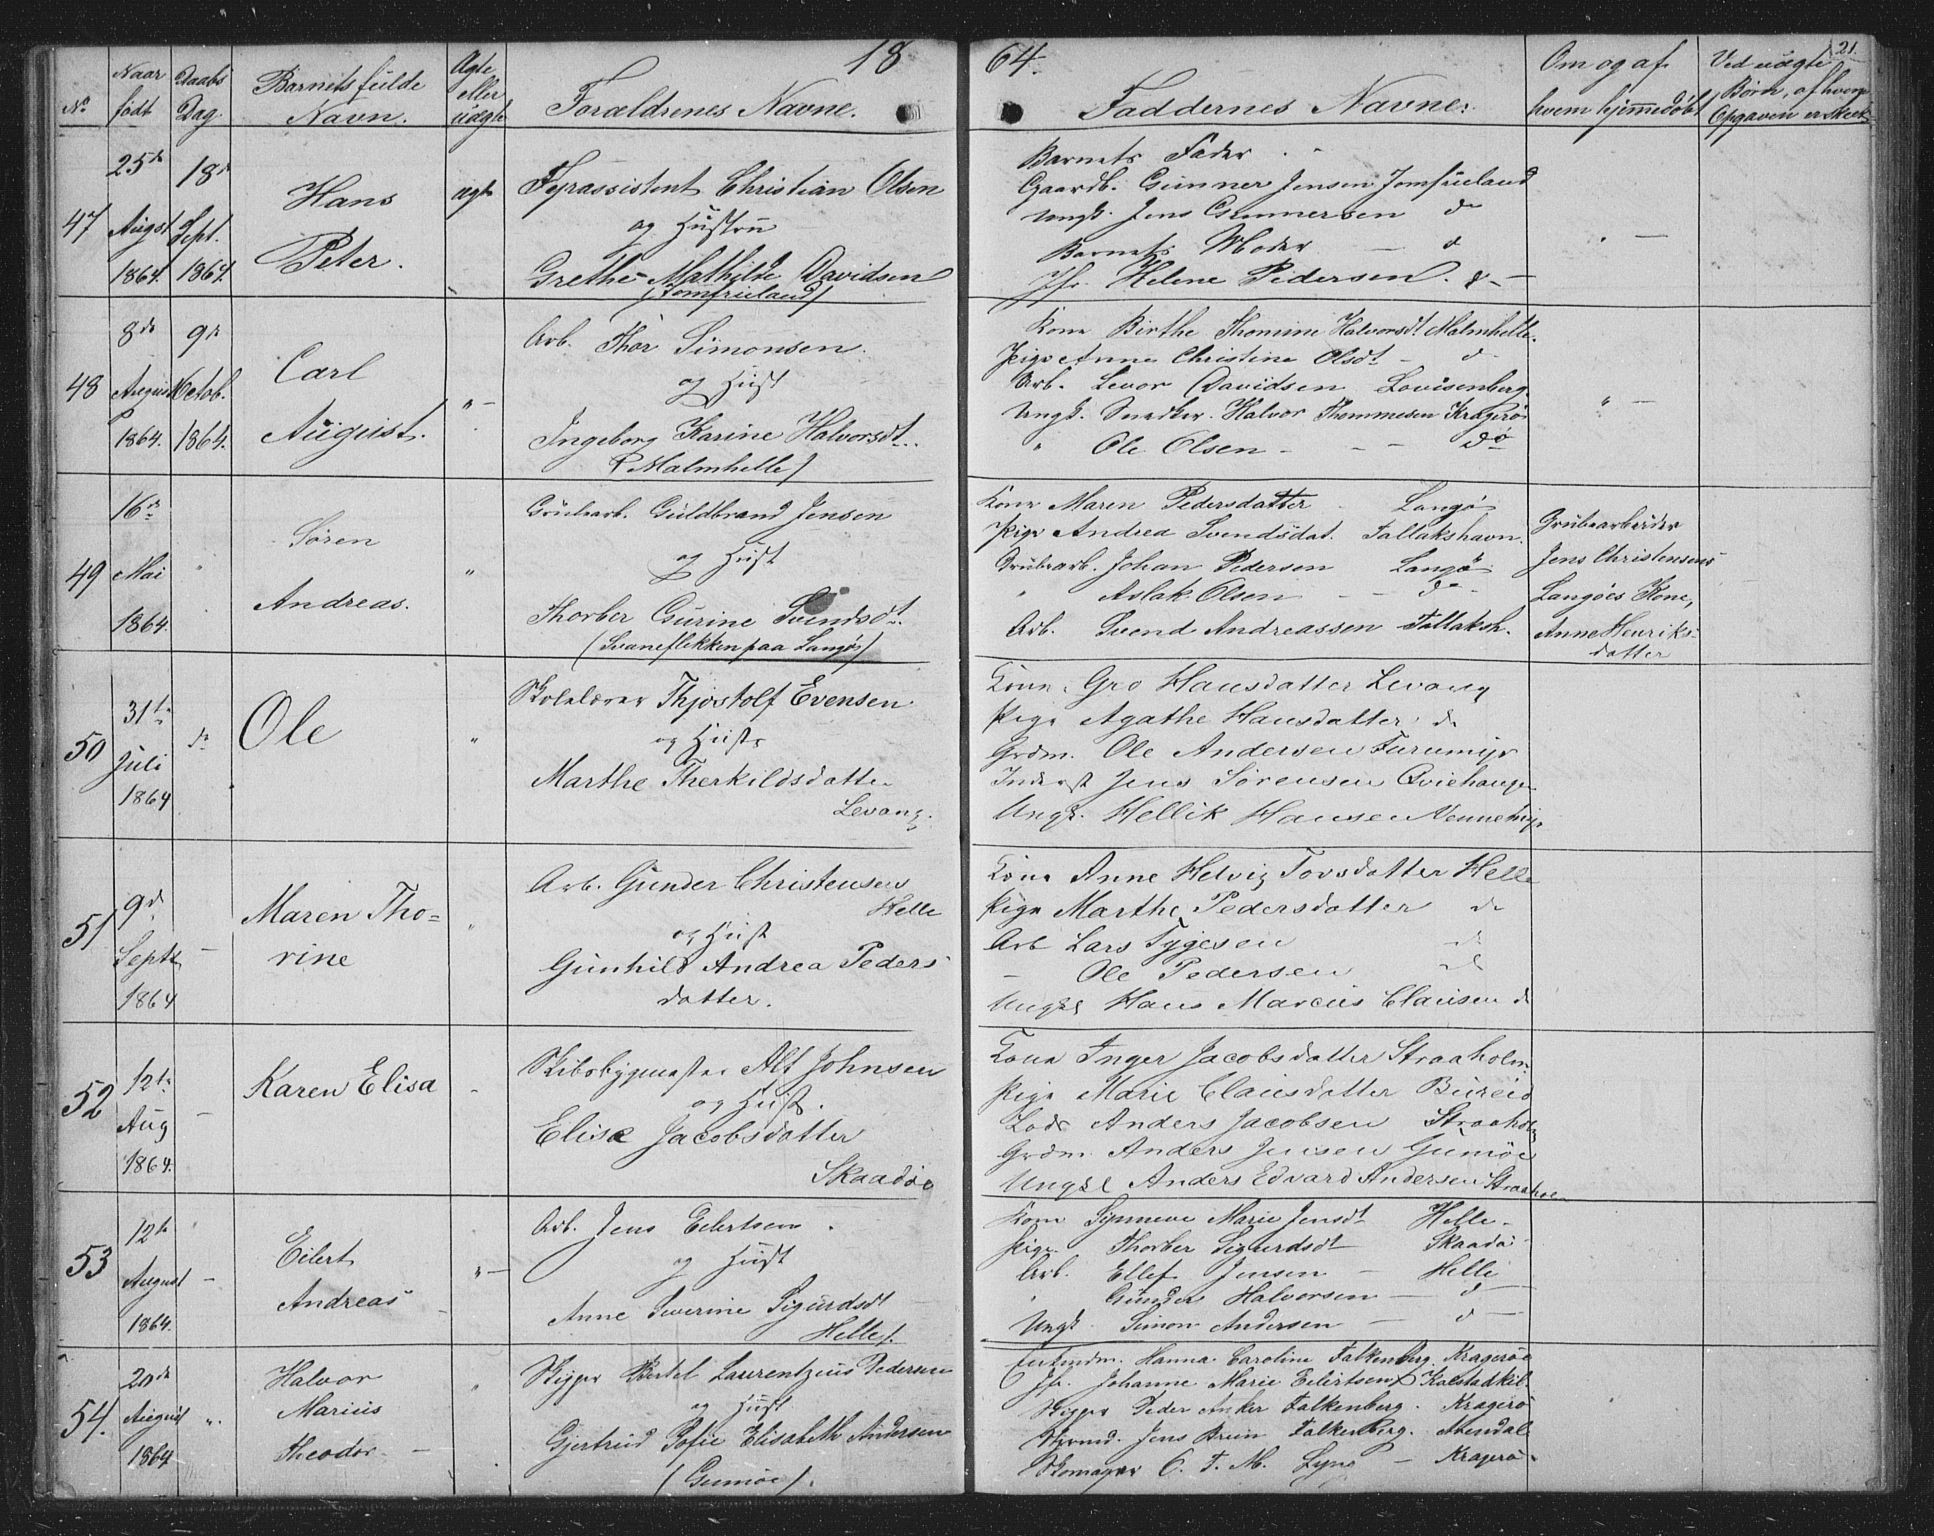 18 64.
21.
No
Naar født
Daabs Dag
Barnets fulde Navn.
Ægte eller uægte
Forældrenes Navne.
Faddernes Navne.
Om og af hvem hjemmedøbt
Ved uægte Børn, af hvem Opgaven er skeet
47
25de August 1864.
18de Sept. 1864.
Hans Peter.
ægte
Fyrassistent Christian Olsen
og Hustru
Grethe Mathilde Davidsen
(Jomfrueland)
Barnets Fader
Gaardb. Gunner Jensen Jomfrueland
Ungk. Jens Gunnersen do
Barnets Moder — d
Jfr. Helene Pedersen. d —
48
8de August 1864.
9de Octob. 1864.
Carl August.
" —
Arb. Thor Simonsen.
og Hust
Ingeborg Karine Halvorsdt.
(Malmhelle)
Kone Birthe Thomine Halvorsdt. Malmhelle.
Pige Anne Christine Olsdt — d
Arb. Levor Davidsen Lovisenberg
Ungk. Snedker. Halvor Thommesen Kragerø
" Ole Olsen — — do
" —
49
16de Mai 1864.
"
Søren Andreas.
"
Grubearb. Guldbrand Jensen
og Hust
Thorber Gurine Svendsdt.
(Svaneflekken paa Langø)
Kone Maren Pedersdatter Langø
Pige Andrea Svendsdat. Tallakshavn.
Grubearb. Johan Pedersen Langø
" Aslak Olsen — — do
Arb. Svend Andreassen Tallaksh.
Grubearbeider
Jens Christensens
Langøes Kone,
Anne Henriks-
datter
50
31te Juli 1864
do
Ole
"
Skolelærer Thjostolf Evensen
og Hustr
Marthe Therkildsdatter
Levang.
Kone Gro Hansdatter Levang
Pige Agathe Hansdatter do
Grdm. Ole Andersen Furumyr
Inderst Jens Sørensen Qviehaugen
Ungk. Hellik Hansen Vennemyr
51
9de Septr 1864
—
Maren Tho=
rine
"
Arb. Gunder Christensen
Helle
og Hust
Gunhild Andrea Peders
datter.
Kone Anne Helvig Torsdatter Helle
Pige Marthe Pedersdatter do
Arb Lars Tygesen do
— Ole Pedersen do
Ungkl Hans Marcus Clausen d
52
12te Aug 1864.
—
Karen Elisa
—
Skibsbygmester Alf Johnsen
og Hust.
Elise Jacobsdatter
Skaadøe
Kone Inger Jacobsdatter Straaholm.
Pige Marie Clausdatter Bureid
Lods Anders Jacobsen Straaholm
Grdm. Anders Jensen Gumøe
Ungkl Anders Edvard Andersen Straahol
53
12te August 1864.
—
Eilert Andreas
" —
Arb. Jens Eilertsen.
og Hust
Anne Severine Sigurdsdt
Helle/.
Kone Synneve Marie Jensdt Helle.
Pige. Thorber Sigurdsdt Skaadø
Arb. Ellef Jensen — Helle
" Gunder Halvorsen — d —
Ungk. Simon Andersen — d —
54.
20de August 1864
".
Halvor
Marius
Theodor. —
"
Skipper Bertel Laurentzius Pedersen
og Hust
Gjertrud Sofie Elisabeth Andersen
(Gumøe).
Hanna Caroline Falkenberg. Kragerøe
Jfr. Johanne Marie Eilertsen, Kalstadkil.
Skipper Peder Anker Falkenberg. Kragerø
Styrmd. Jens Bruun Falkenberg. Arendal
Skomager C. T. M. Lyno — Kragerø.